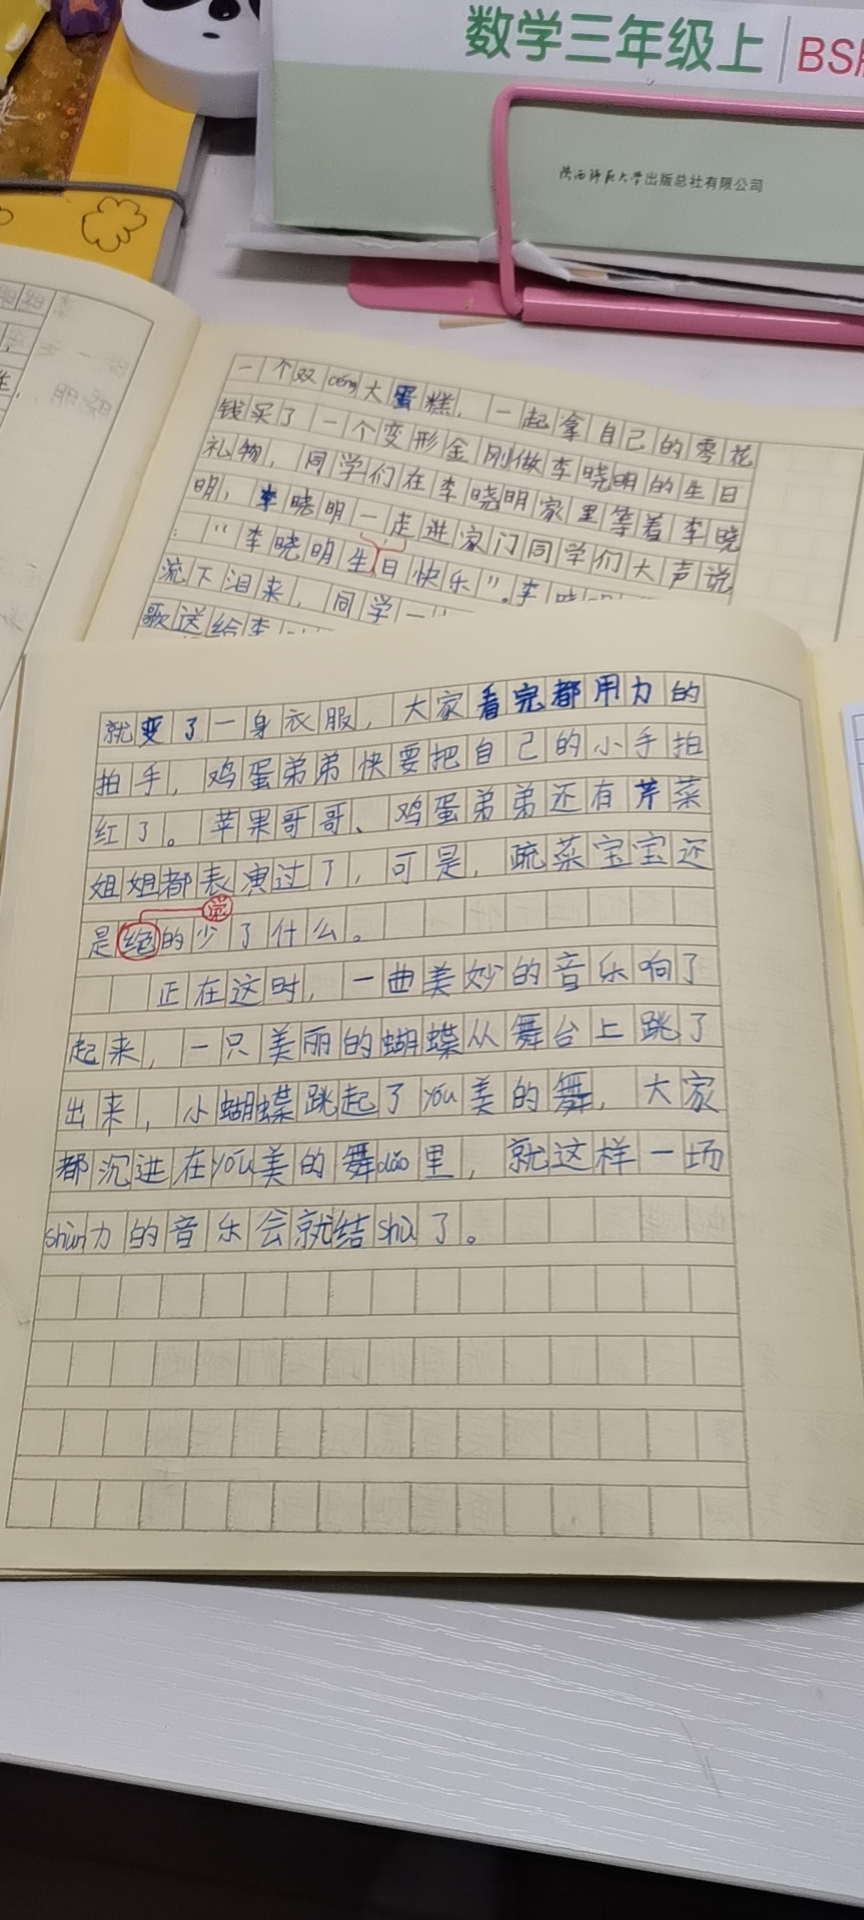 数学三年级上 BS版
陕西师范大学出版总社有限公司
一个双céng大蛋糕，一起拿自己的零花
钱买了一个变形金刚做李晓明的生日
礼物，同学们在李晓明家里等着李晓
明，李晓明一走进家门同学们大声说
：“李晓明生日快乐”。李
流下泪来，同学一
歌送给李
就变了一身衣服，大家看完都用力的
拍手，鸡蛋弟弟快要把自己的小手拍
红了。苹果哥哥、鸡蛋弟弟还有芹菜
姐姐都表演过了，可是，疏菜宝宝还
觉
是绝的少了什么。
正在这时，一曲美妙的音乐响了
起来，一只美丽的蝴蝶从舞台上跳了
出来，小蝴蝶跳起了yōu美的舞，大家
都沉进在yōu美的舞dǎo里，就这样一场
shùn力的音乐会就结shù了。